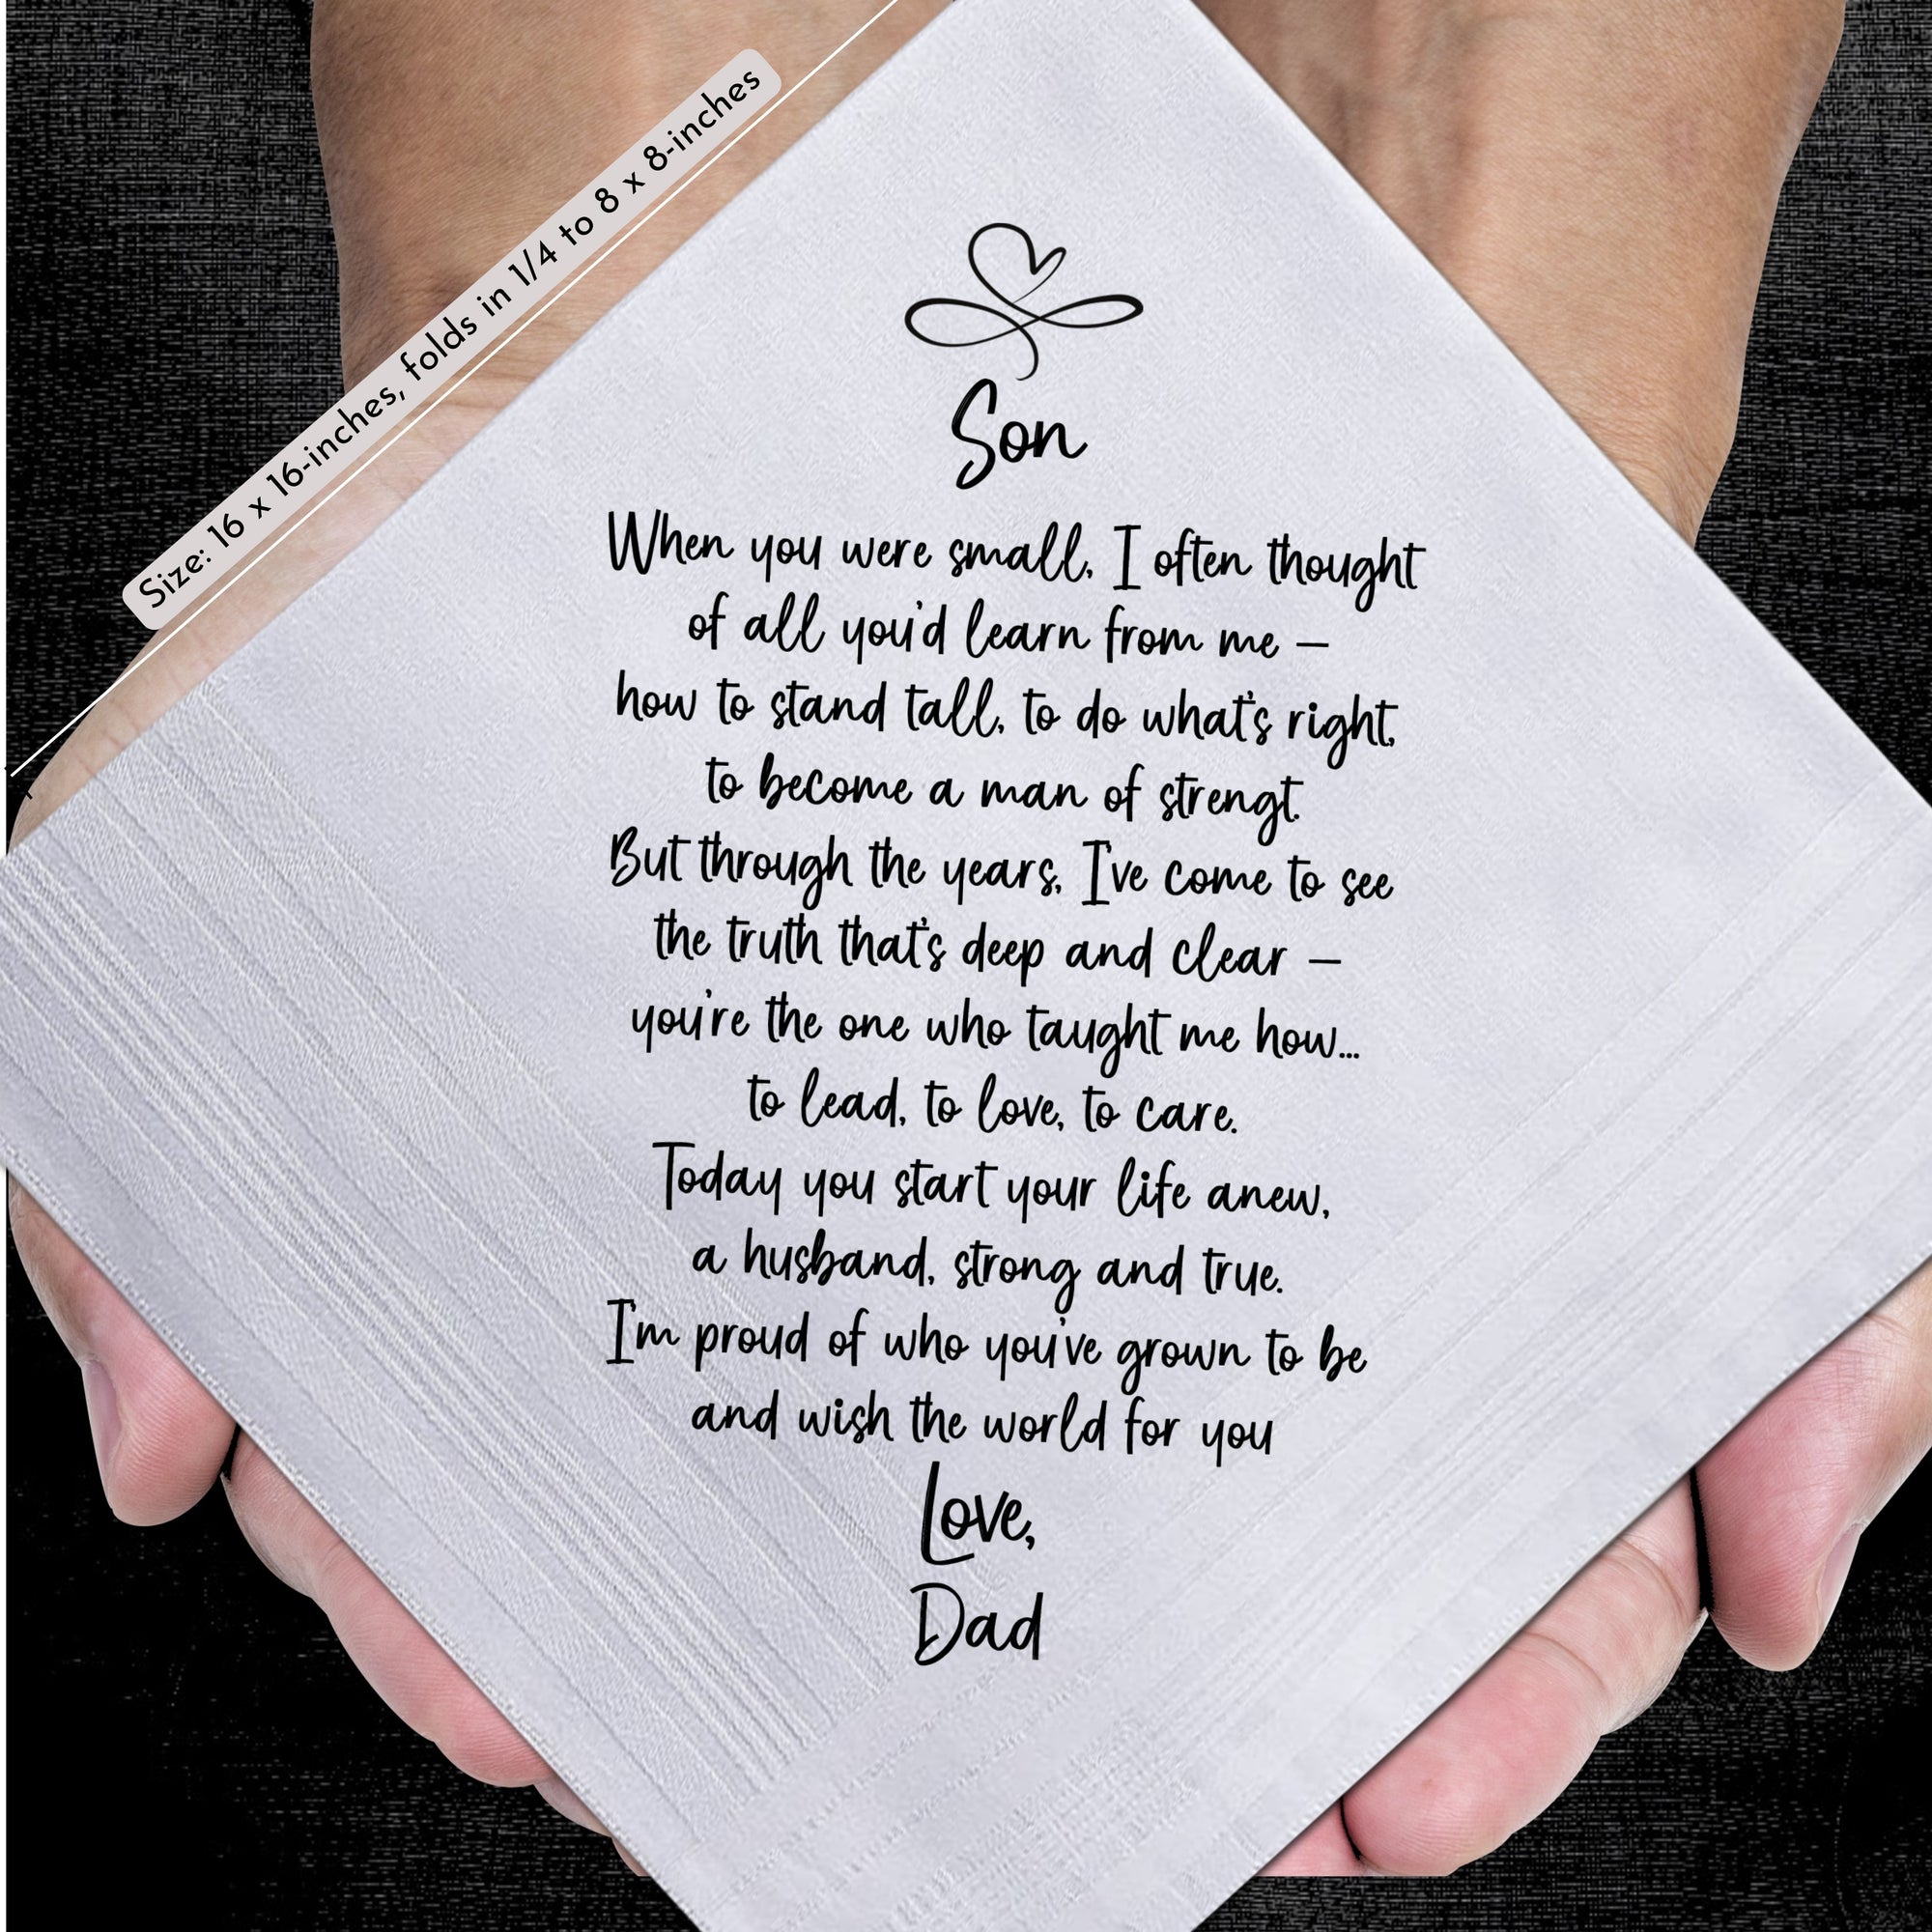 Size: 16 x 16-inches, folds in 1/4 to 8 x 8-inches
Son
When you were small, I often thought
of all you'd learn from me –
how to stand tall, to do what's right,
to become a man of strengt.
But through the years, I've come to see
the truth that's deep and clear –
you're the one who taught me how...
to lead, to love, to care.
Today you start your life anew,
a husband, strong and true.
I'm proud of who you've grown to be
and wish the world for you
Love,
Dad